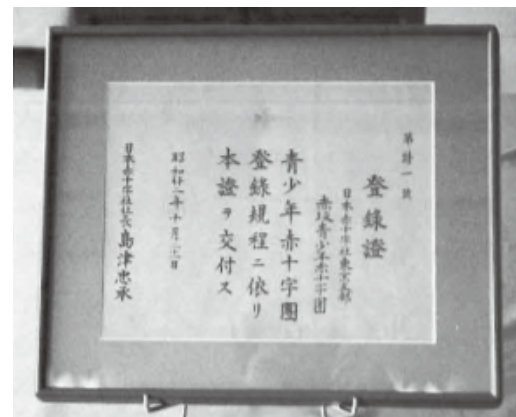 第特一號
登錄證
日本赤十字社東京支部
赤坂青少年赤十字團
青少年赤十字團
登錄規程ニ依リ
本證ヲ交付ス
昭和廿二年十月
日本赤十字社社長島津忠承